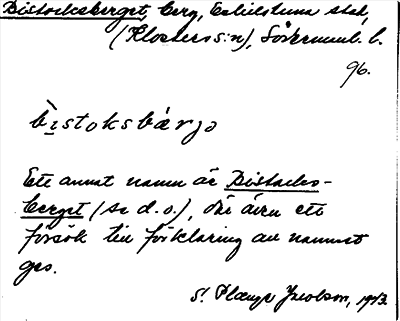 Bistocksberget, berg, Eskilstuna stad,
(Klosters s:n), Söderml. l.
96.
bistoksbärjə
Ett annat namn är Bistades-
berget (Se d. o.), där även ett
försök till förklaring av namnet
ges.
S. Plænge Jacobson, 1973.